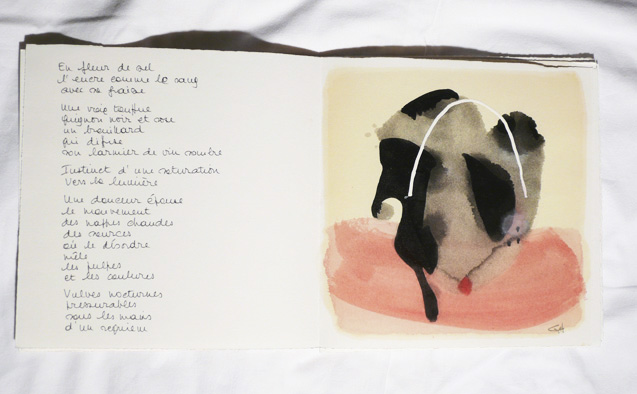 En fleur de sel
l'encre comme le sang
avec sa fraise
Une vraie touffue
guignon noir et cose
un brouillard
qui diffuse
son larmier de vin sombre
Instinct d'une saturation
Vers la lumière
Une douceur épouse
le mouvement
des nappes chaudes
des sources
où le désordre
mêle
les pulpes
et les coutures
Vulves nocturnes
pressurables
sous les mains
d'un requiem